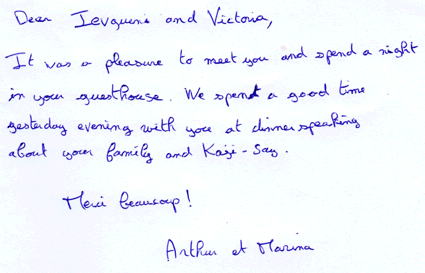 Dear Ievgueni and Victoria,
It was a pleasure to meet you and spend a night
in your guesthouse. We spent a good time
yesterday evening with you at dinner speaking
about your family and Kaji-Say.
Merci beaucoup!
Arthur et Marina